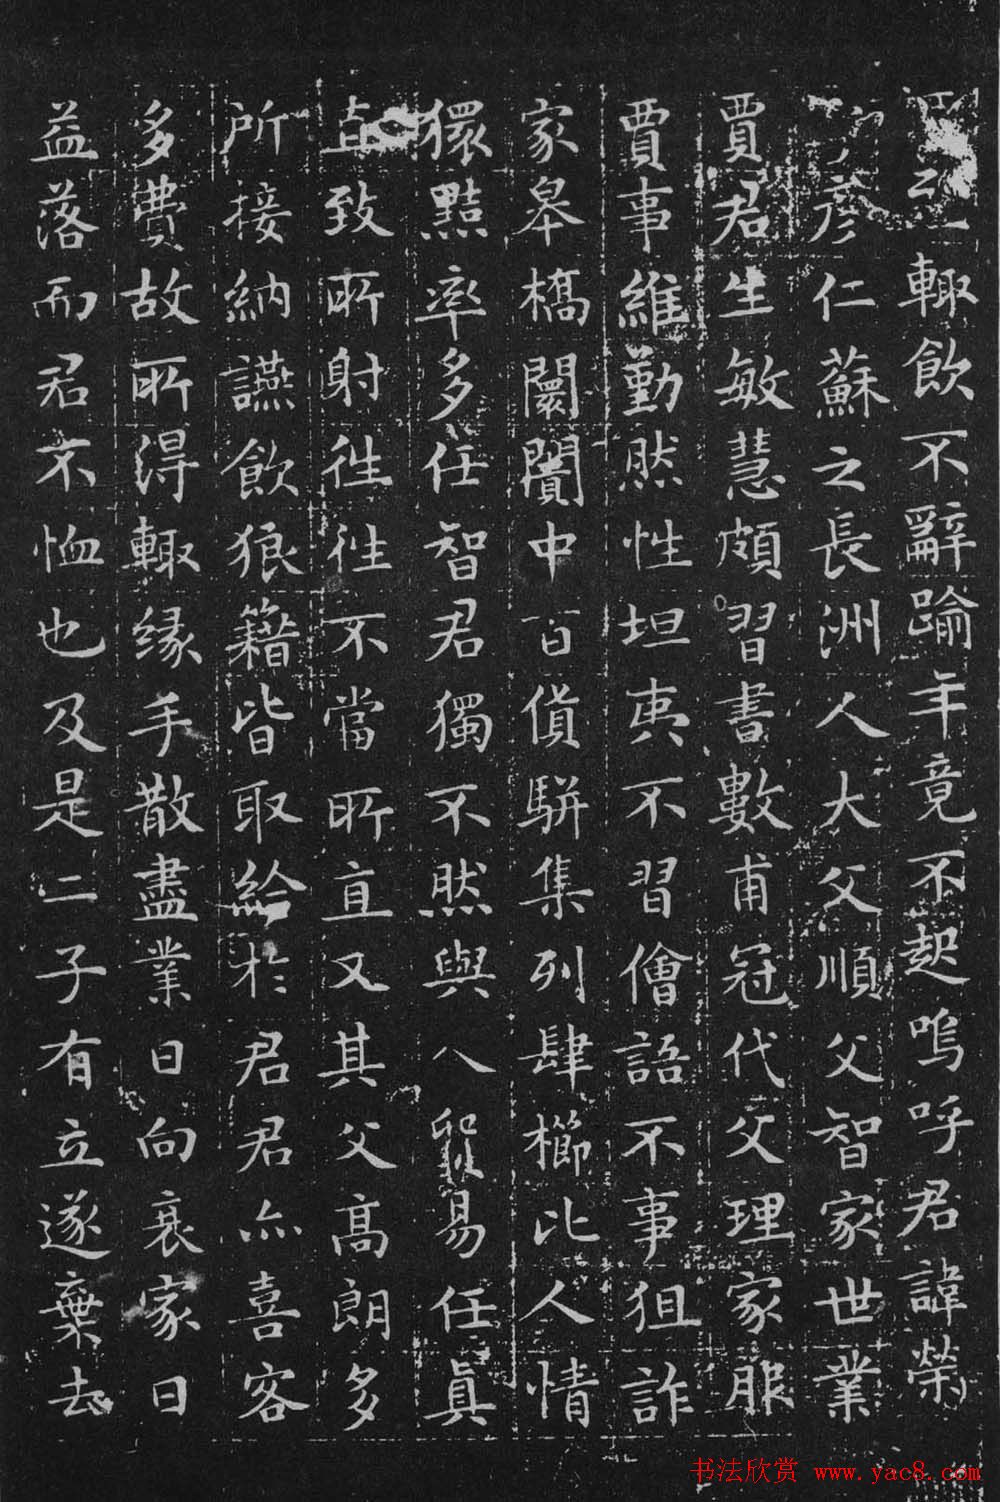 輙飲不辭踰年竟不起嗚呼君諱榮
彥仁蘇之長洲人大父順父智家世業
賈君生敏慧頗習書數甫冠代父理家服
賈事維勤然性坦夷不習儈語不事狙詐
家皋橋闤闠中百貨駢集列肆櫛比人情
獧黠率多任智君獨不然與人貿易任眞
直致所射徃徃不當所直又其父高朗多
所接納讌飲狼籍皆取給於君君亦喜客
多費故所得輙缘手散盡業日向衰家日
益落而君不恤也及是二子有立遂棄去
书法欣赏 www.yac8.com